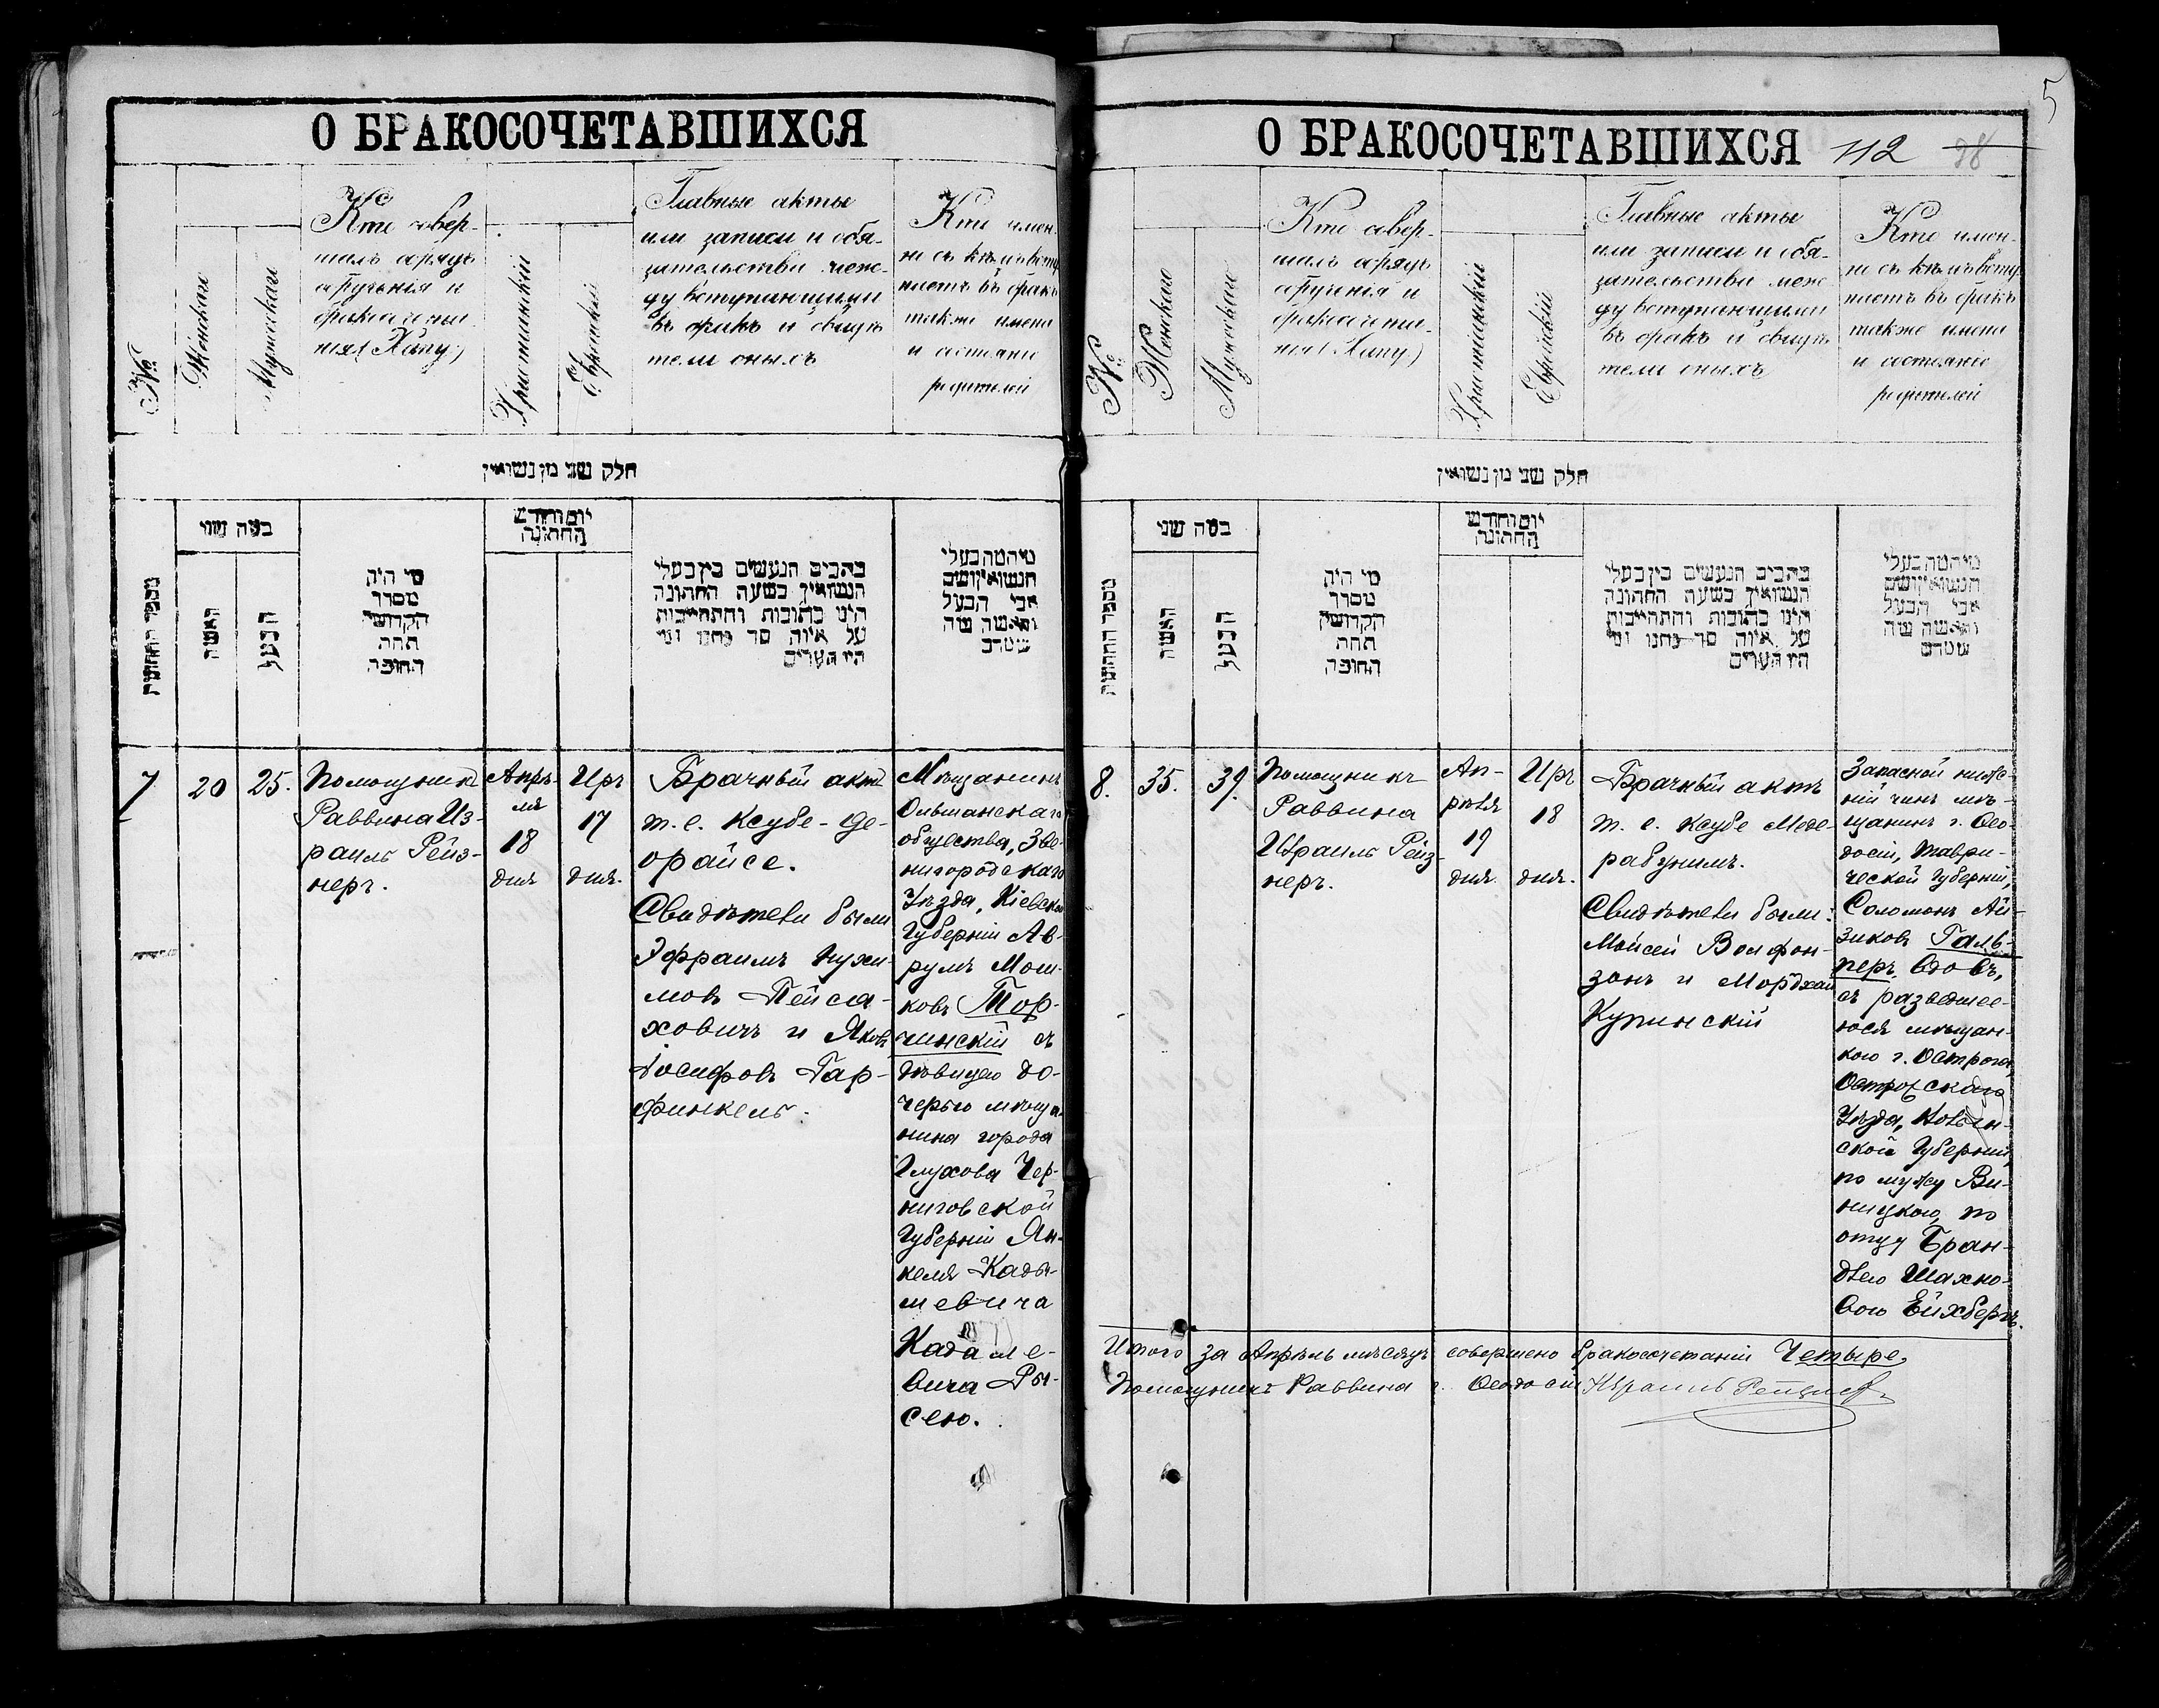 О БРАКОСОЧЕТАВШИХСЯ
№
Женскаго
Мужескаго
Кто совер-
шалъ обрядъ
обрученія и
бракосочета
нія (Хипу)
Христіанскій
Еврейскій
Главные акты
или записи и обя-
зательства меж-
ду вступающими
въ бракъ и свидѣ
тели оныхъ
Кто имен-
но съ кѣмъ всту
паетъ въ бракъ
также имена
и состояніе
родителей
חלק שני מן נשואין
מספר החתונות
כמה שני
האשה
הבעל
מי היה
מסדר
הקדושין
תחת
החופה
יום וחודש
החתונה
כתבים הנעשים בין בעלי
הנשואין בשעה החתונה
היינו כתובות והתחייבות
על איזה סך נתנו ומי
היו העדים
מי המה בעלי
הנשואין ושם
אבי הבעל
והאשה
7
20
25.
Помощникъ
Раввина Из-
раиль Рейз-
неръ.
Апрѣ-
ля
18
дня
Иръ
17
дня.
Брачный актъ
т. е. Ксубе-де-
орайсе.
Свидѣтели были
Эфраимъ Нухи-
мовъ Пейса-
ховичъ и Яковъ
Іосифовъ Гар-
финкель.
Мѣщанинъ
Ольшанскаго
общества, Зве-
нигородскаго
Уѣзда, Кіевской
Губерніи Ав-
румъ Мош-
ковъ Тор-
чинскій съ
дѣвицею до-
черью мѣща-
нина города
Глухова Чер-
ниговской
Губерніи Ян-
келя Кады-
шевича
Кадаше-
вича Ры-
сею.
5
О БРАКОСОЧЕТАВШИХСЯ 112 38
№
Женскаго
Мужескаго
Кто совер-
шалъ обрядъ
обрученія и
бракосочета-
нія (Хипу)
Христіанскій
Еврейскій
Главные акты
или записи и обя-
зательства меж
ду вступающими
въ бракъ и свидѣ
тели оныхъ
Кто имен-
но съ кѣмъ всту
паетъ въ бракъ
также имена
и состояніе
родителей
חלק שני מן נשואין
מספר החתונות
כמה שני
האשה
הבעל
מי היה
מסדר
הקדושין
תחת
החופה
יום וחודש
החתונה
כתבים הנעשים בין בעלי
הנשואין בשעה החתונה
היינו כתובות והתחייבות
על איזה סך נתנו ומי
היו העדים
מי המה בעלי
הנשואין ושם
אבי הבעל
והאשה
8.
35.
39.
Помощникъ
Раввина
Израиль Рейз-
неръ.
Ап-
рѣля
19
дня.
Иръ
18
дня.
Брачный актъ
т. е. Ксубе Меде-
рабунимъ.
Свидѣтели были:
Мойсей Вольфон-
зонъ и Мордхай
Купинскій
Запасной ниж-
ній чинъ мѣ-
щанинъ г. Ѳео-
досіи, Таври-
ческой Губерніи,
Соломонъ Ай-
зиковъ Гальпе-
перъ, вдовъ,
съ разведшее-
юся мѣщан-
кою г. Острога,
Острожскаго
Уѣзда, Волын-
ской Губерніи,
по мужу Ви-
ницкою, по
отцу Бран-
дlею Шахно-
вою Ейхбергъ.
Итого за Апрѣль мѣсяцъ совершено бракосочетаній Четыре.
Помощникъ Раввина г. Ѳеодосіи Израиль Рейзнеръ